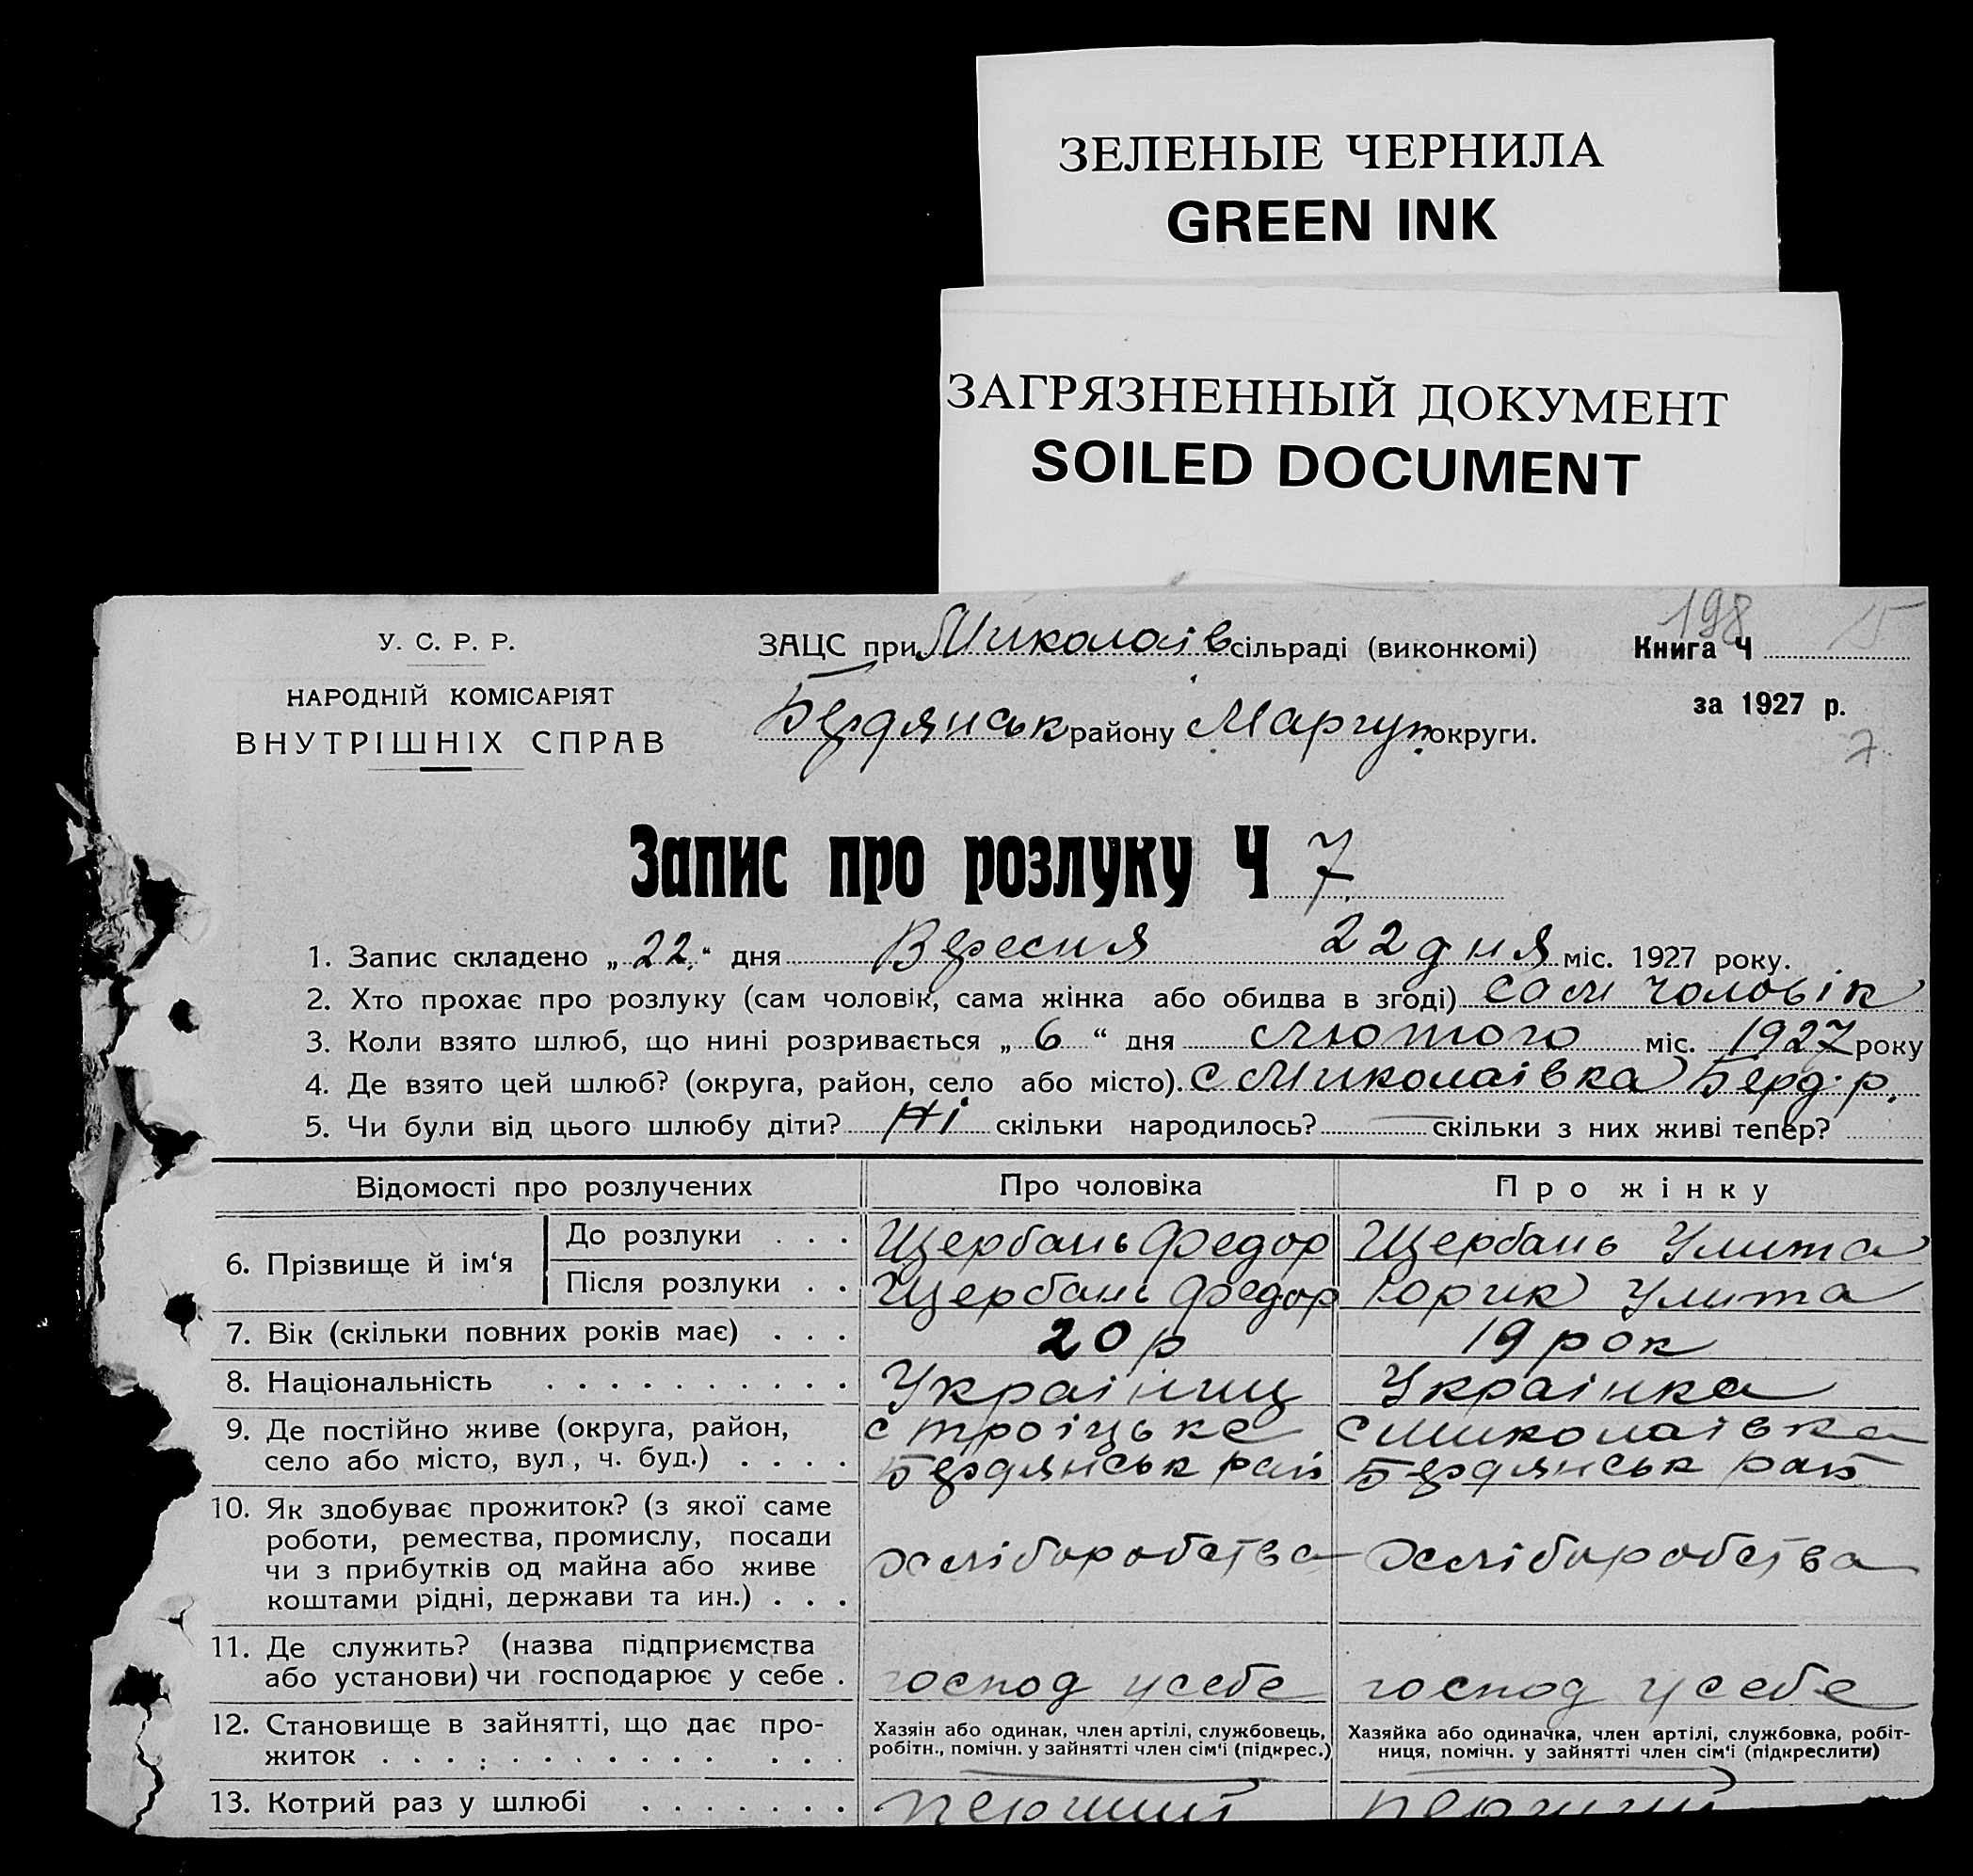 ЗЕЛЕНЫЕ ЧЕРНИЛА
GREEN INK
ЗАГРЯЗНЕННЫЙ ДОКУМЕНТ
SOILED DOCUMENT
198 15
У. С. Р. Р.
НАРОДНІЙ КОМІСАРІЯТ
ВНУТРІШНІХ СПРАВ
ЗАЦС при Миколаів сільраді (виконкомі)
Бердянськ района Маріуп. округи.
Книга Ч
за 1927 р.
7
Запис про розлуку Ч 7.
1. Запис складено „22.“ дня Вересня 22 дня міс. 1927 року.
2. Хто прохає про розлуку (сам чоловік, сама жінка або обидва в згоді) сам чоловік
3. Коли взято шлюб, що нині розривається „6“ дня лютого міс. 1927 року
4. Де взято цей шлюб? (округа, район, село або місто). с Миколаівка Берд. р.
5. Чи були від цього шлюбу діти? Ні скільки народилось? — скільки з них живі тепер?
Відомості про розлучених Про чоловіка Про жінку
6. Прізвище й ім‘я До розлуки . . . Щербань Федор Щербань Улита
Після розлуки . . Щербань Федор Юрик Улита
7. Вік (скільки повних років має) . . . 20 р 19 рок
8. Національність . . . . . . . . . . Украіниц Украінка
9. Де постійно живе (округа, район, с троіцьке с Миколаівка
село або місто, вул., ч. буд.) . . . . Бердянськ рай Бердянськ рай
10. Як здобуває прожиток? (з якої саме
роботи, ремества, промислу, посади
чи з прибутків од майна або живе хліборобства хліборобства
коштами рідні, держави та ин.) . . .
11. Де служить? (назва підприємства
або установи) чи господарює у себе . господ у себе господ у себе
12. Становище в зайнятті, що дає про-
житок . . . . . . . . . . . . . .
Хазяін або одинак, член артілі, службовець,
робітн., помічн. у зайнятті член сім‘і (підкрес.)
Хазяйка або одиначка, член артілі, службовка, робіт-
ниця, помічн. у зайнятті член сім‘і (підкреслити)
13. Котрий раз у шлюбі . . . . . . . перший перший